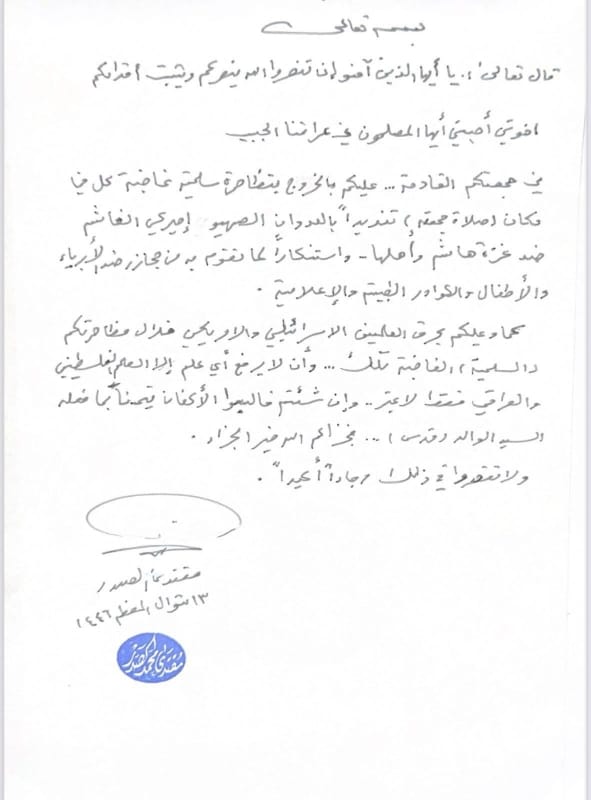 بسمه تعالى
قال تعالى: يا أيها الذين آمنوا إن تنصروا الله ينصركم ويثبت أقدامكم
اخوتي أحبتي أيها المصلون في عراقنا الحبيب
في جمعتكم القادمة... عليكم بالخروج بتظاهرة سلمية غاضبة كل في
مكان (صلاة جمعته) تنديداً بالعدوان الصهيو إميركي الغاشم
ضد غزة هاشم وأهلها.. واستنكاراً لما تقوم به من مجازر ضد الأبرياء
والأطفال والكوادر الطبية والإعلامية.
كما وعليكم بحرق العلمين الاسرائيلي والامريكي خلال مظاهرتكم
(السلمية) الغاضبة تلك... وأن لا يرفع أي علم إلا العلم الفلسطيني
والعراقي فقط لا غير.. وإن شئتم فالبسوا الأكفان تيمناً بما فعله
السيد الوالد (قدس)... فجزاكم الله خير الجزاء.
ولا تقصروا في ذلك رجاءاً أكيداً.
مقتدى الصدر
١٣ شوال المعظم ١٤٤٦
مقتدى محمد الصدر